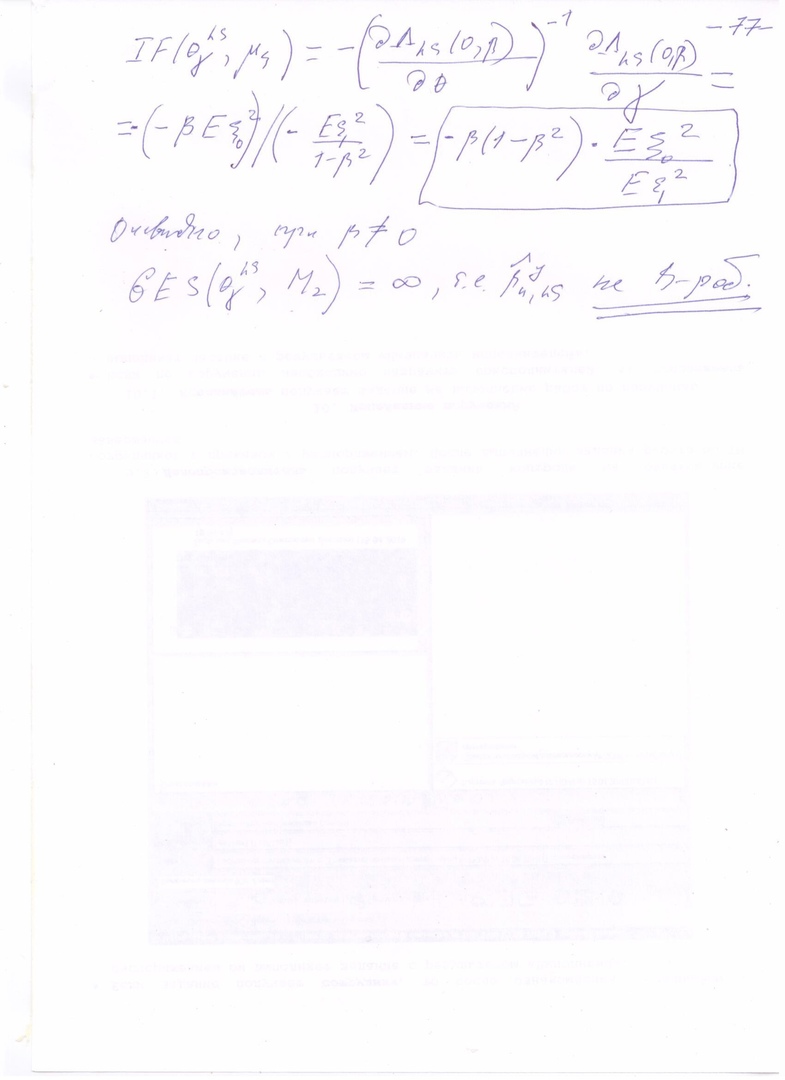 -77-
IF(θ_γ^{LS}, μ_ξ) = -(∂Λ_{LS}(0,β)/∂θ)^{-1} ∂Λ_{LS}(0,β)/∂γ =
= -(-βEξ_0^2)/(-Eε_1^2/(1-β^2)) = -β(1-β^2)·Eξ_0^2/Eε_1^2
Очевидно, при β≠0
GES(θ_γ^{LS}, M_2) = ∞, т.е. β̂_{n,LS}^y не B-роб.